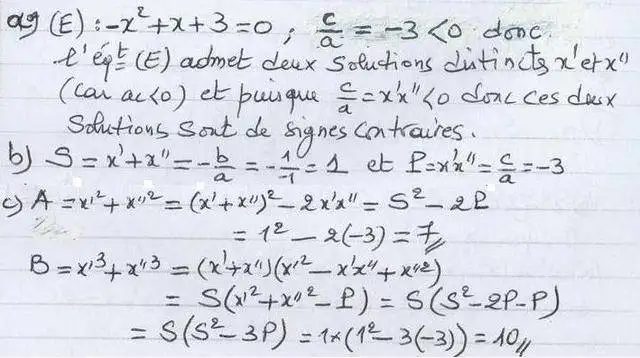 a) (E) : -x² + x + 3 = 0 ; c/a = -3 < 0 donc
l'éqt (E) admet deux solutions distincts x' et x"
(car ac<0) et puisque c/a = x'x" < 0 donc ces deux
solutions sont de signes contraires.
b) S = x' + x" = -b/a = -1/-1 = 1 et P = x'x" = c/a = -3
c) A = x'² + x"² = (x' + x")² - 2x'x" = S² - 2P
= 1² - 2(-3) = 7
B = x'³ + x"³ = (x' + x")(x'² - x'x" + x"²)
= S(x'² + x"² - P) = S(S² - 2P - P)
= S(S² - 3P) = 1×(1² - 3(-3)) = 10